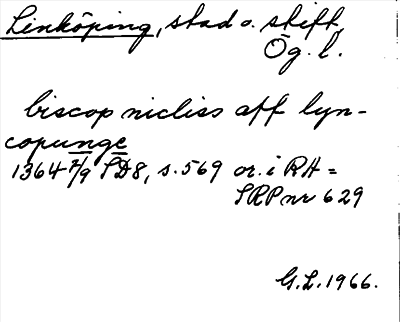 Linköping, stad o. stift,
Ög. l.
biscop nicliss aff lyn-
copunge
1364 2/9 SD8, s. 569 or. i RA =
SRP nr 629
G.L. 1966.